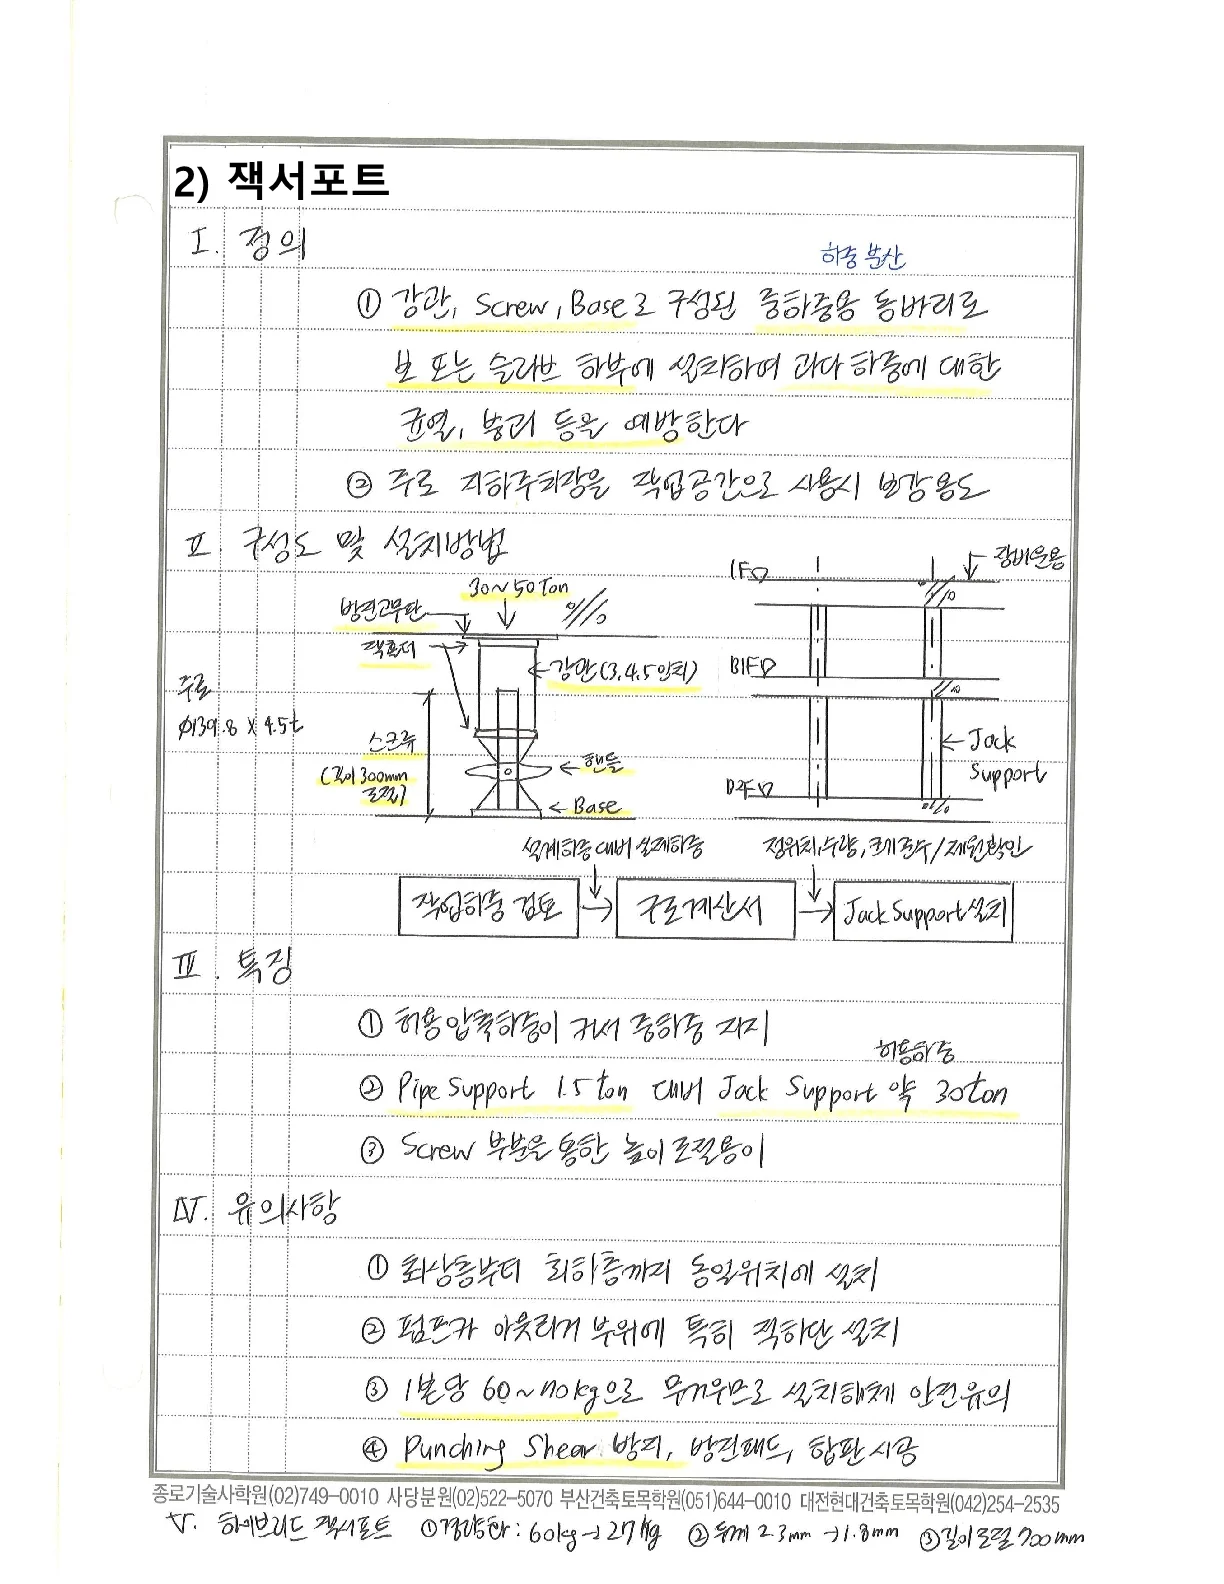 2) 잭서포트
I. 정의
하중 분산
① 강관, Screw, Base로 구성된 중하중용 동바리로
보 또는 슬라브 하부에 설치하여 과다하중에 대한
균열, 붕괴 등을 예방한다
② 주로 지하주차장을 작업공간으로 사용시 보강용도
II. 구성도 및 설치방법
30~50Ton
방진고무판
잭홀더
강관(3.4.5인치)
주로
Φ139.8 X 4.5t
스크류
(길이 300mm
조절)
핸들
Base
1F
장비운용
B1F
B2F
Jack
Support
설계하중 대비 실제하중
정위치, 수량, 크기 준수/제원확인
작업하중 검토
구조계산서
Jack Support 설치
III. 특징
① 허용압축하중이 커서 중하중 지지
허용하중
② Pipe Support 1.5ton 대비 Jack Support 약 30ton
③ Screw 부분을 통한 높이조절용이
IV. 유의사항
① 최상층부터 최하층까지 동일위치에 설치
② 펌프카 아웃리거 부위에 특히 직하단 설치
③ 1본당 60~70kg으로 무거우므로 설치해체 안전유의
④ Punching Shear 방지, 방진패드, 합판시공
종로기술사학원(02)749-0010 사당분원(02)522-5070 부산건축토목학원(051)644-0010 대전현대건축토목학원(042)254-2535
V. 하이브리드 잭서포트 ①경량화 : 60kg→27kg ②두께 2.3mm→1.8mm ③길이조절 700mm